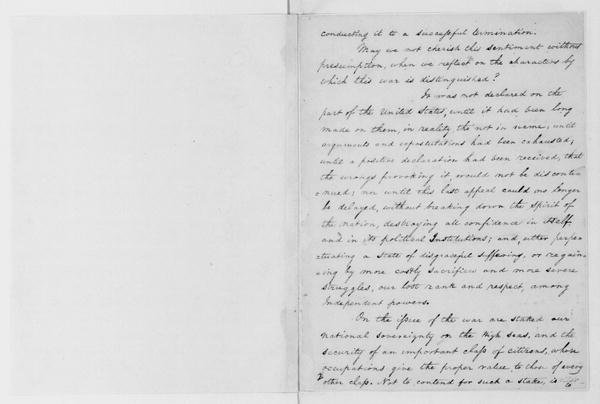 conducting it to a successful termination.
May we not cherish this sentiment without
presumption, when we reflect on the characters by
which this war is distinguished?
It was not declared on the
part of the United States, until it had been long
made on them, in reality tho' not in name; until
arguments and expostulations had been exhausted;
until a positive declaration had been received, that
the wrongs provoking it, would not be discontin
=nued; nor until this last appeal could no longer
be delayed, without breaking down the spirit of
the nation, destroying all confidence in itself
and in its political Institutions; and, either perpe
=tuating a state of disgraceful suffering, or regain
=ing by more costly sacrifices and more severe
struggles, our lost rank and respect, among
Independent powers.
On the issue of the war are staked our
national sovereignty on the high seas, and the
security of an important class of citizens, whose
occupations give the proper value to those of every
other class. Not to contend for such a stake, is